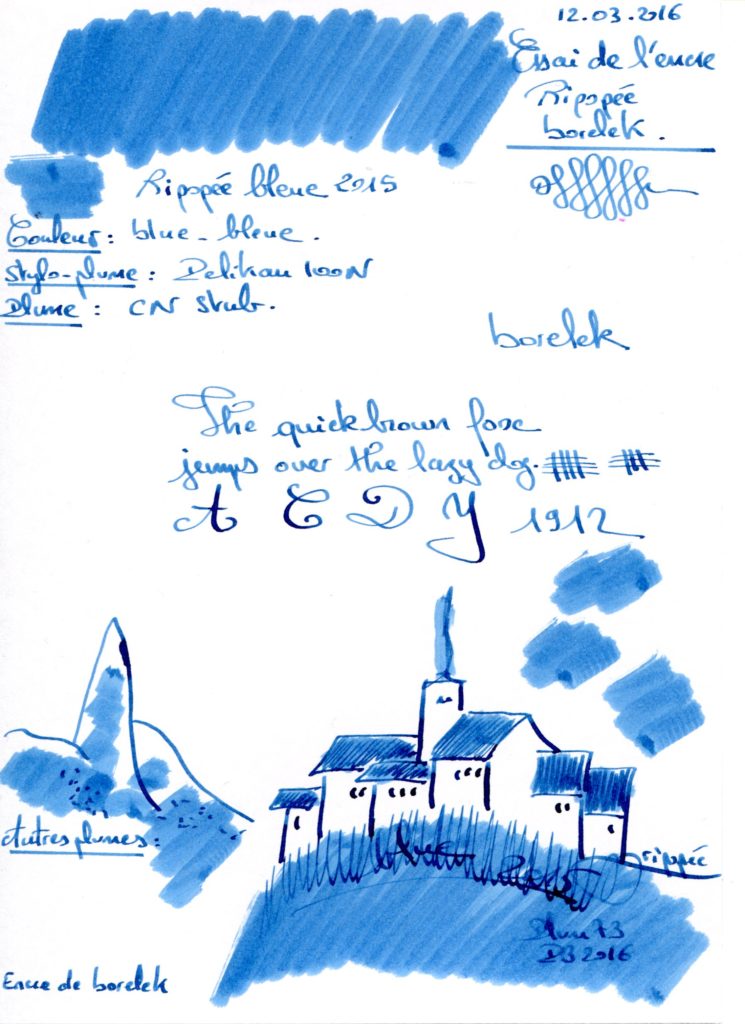 12.03.2016
Essai de l'encre
Ripopée
borelek.
Ripopée bleue 2015
Couleur : blue - bleue.
Stylo-plume : Pelikan 100N
Plume : CN stub.
borelek
The quick brown fox
jumps over the lazy dog.
A C D Y 1912
Autres plumes :
rippée
Plume 73
D3 2016
Encre de borelek